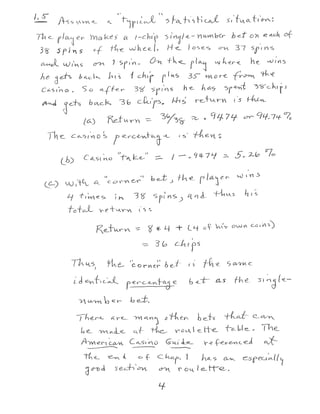 1.5 Assume a "typical" statistical situation:
The player makes a 1-chip single-number bet on each of
38 spins of the wheel. He loses on 37 spins
and wins on 1 spin. On the play where he wins
he gets back his 1 chip plus 35 more from the
casino. So after 38 spins he has spent 38 chips
and gets back 36 chips. His return is then
(a) Return = 36/38 ≈ .9474 or 94.74%
The casino's percentage is then:
(b) Casino "take" = 1 - .9474 = 5.26%
(c) With a "corner" bet, the player wins
4 times in 38 spins, and thus his
total return is:
Return = 8*4 + (4 of his own coins)
= 36 chips
Thus, the "corner" bet is the same
identical percentage bet as the single-
number bet.
There are many other bets that can
be made at the roulette table. The
American Casino Guide referenced at
the end of Chap. 1 has an especially
good section on roulette.
4